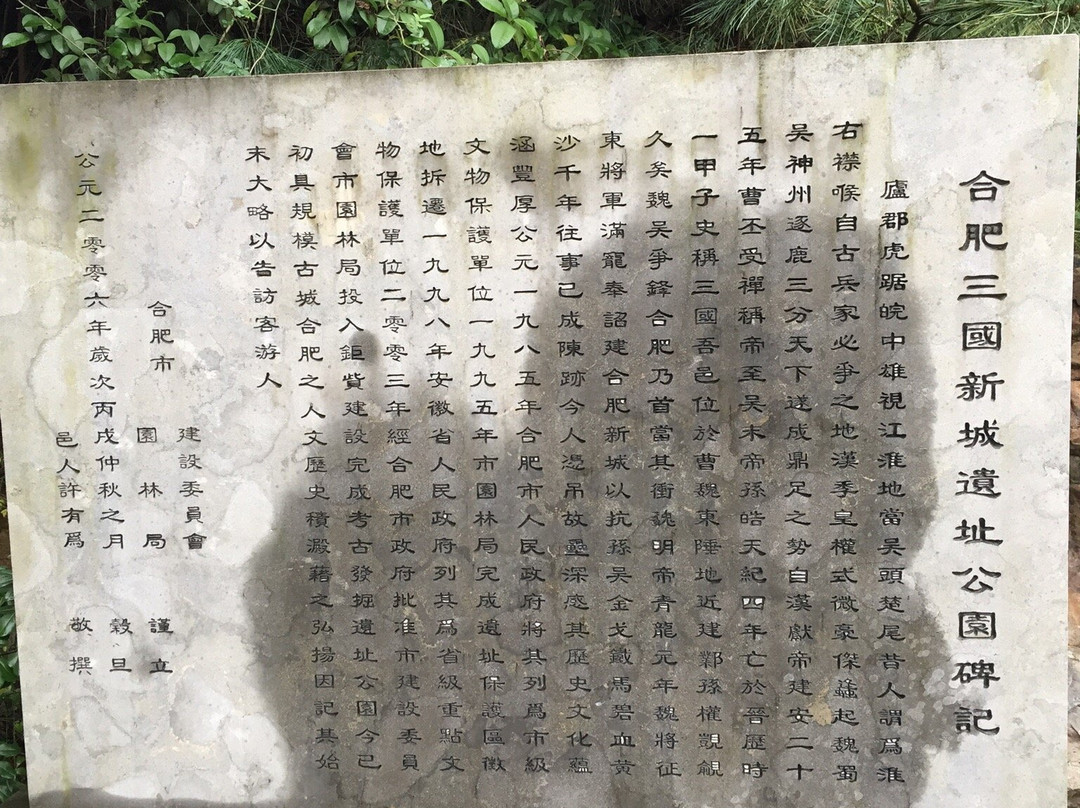 合肥三國新城遺址公園碑記
廬郡虎踞皖中雄視江淮地當吴頭楚尾昔人謂爲淮
右襟喉自古兵家必爭之地漢季皇權式微豪傑蠭起魏蜀
吴神州逐鹿三分天下遂成鼎足之勢自漢獻帝建安二十
五年曹丕受禪稱帝至吴末帝孫皓天紀四年亡於晉歷時
一甲子史稱三國吾邑位於曹魏東陲地近建鄴孫權覬覦
久矣魏吴爭鋒合肥乃首當其衝魏明帝青龍元年魏將征
東將軍滿寵奉詔建合肥新城以抗孫吴金戈鐵馬碧血黄
沙千年往事已成陳跡今人憑吊故壘深感其歷史文化蘊
涵豐厚公元一九八五年合肥市人民政府將其列爲市級
文物保護單位一九九五年市園林局完成遺址保護區徵
地拆遷一九九八年安徽省人民政府列其爲省級重點文
物保護單位二零零三年經合肥市政府批准市建設委員
會市園林局投入鉅貲建設完成考古發掘遺址公園今已
初具規模古城合肥之人文歷史積澱藉之弘揚因記其始
末大略以告訪客游人
合肥市
建設委員會
園林局
謹立
公元二零零六年歲次丙戌仲秋之月
穀旦
邑人許有爲
敬撰